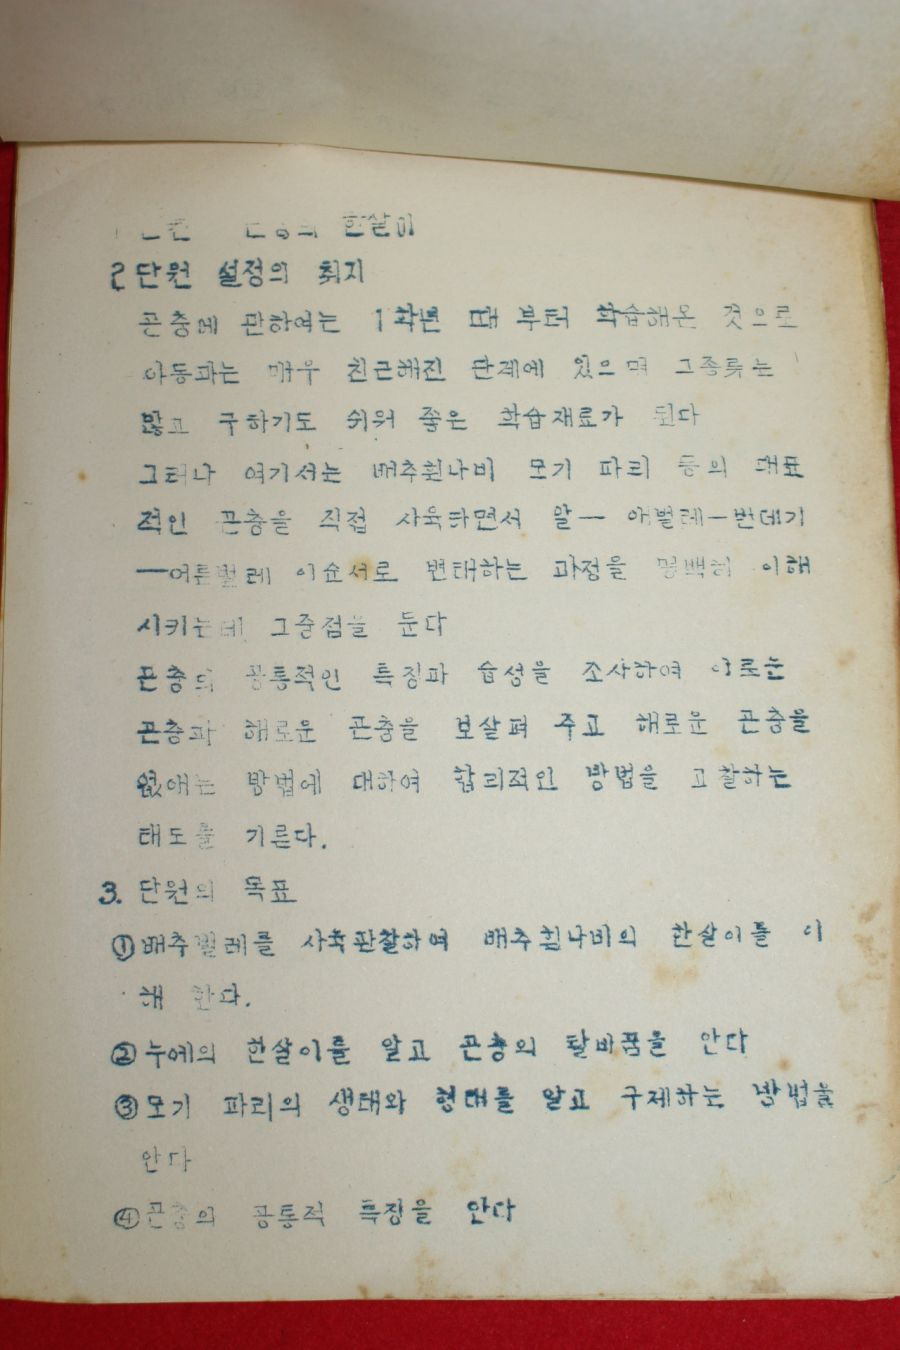 1 단원 곤충의 한살이
2 단원 설정의 취지
곤충에 관하여는 1학년 때 부터 학습해온 것으로
아동과는 매우 친근해진 단계에 있으며 그종류는
많고 구하기도 쉬워 좋은 학습재료가 된다
그러나 여기서는 배추흰나비 모기 파리 등의 대표
적인 곤충을 직접 사육하면서 알— 애벌레—번데기
—어른벌레 이순서로 변태하는 과정을 명백히 이해
시키는데 그중점을 둔다
곤충의 공통적인 특징과 습성을 조사하여 이로운
곤충과 해로운 곤충을 보살펴 주고 해로운 곤충을
없애는 방법에 대하여 합리적인 방법을 고찰하는
태도를 기른다.
3. 단원의 목표
① 배추벌레를 사육관찰하여 배추흰나비의 한살이를 이
해 한다.
② 누에의 한살이를 알고 곤충의 탈바꿈을 안다
③ 모기 파리의 생태와 형태를 알고 구제하는 방법을
안다
④ 곤충의 공통적 특징을 안다